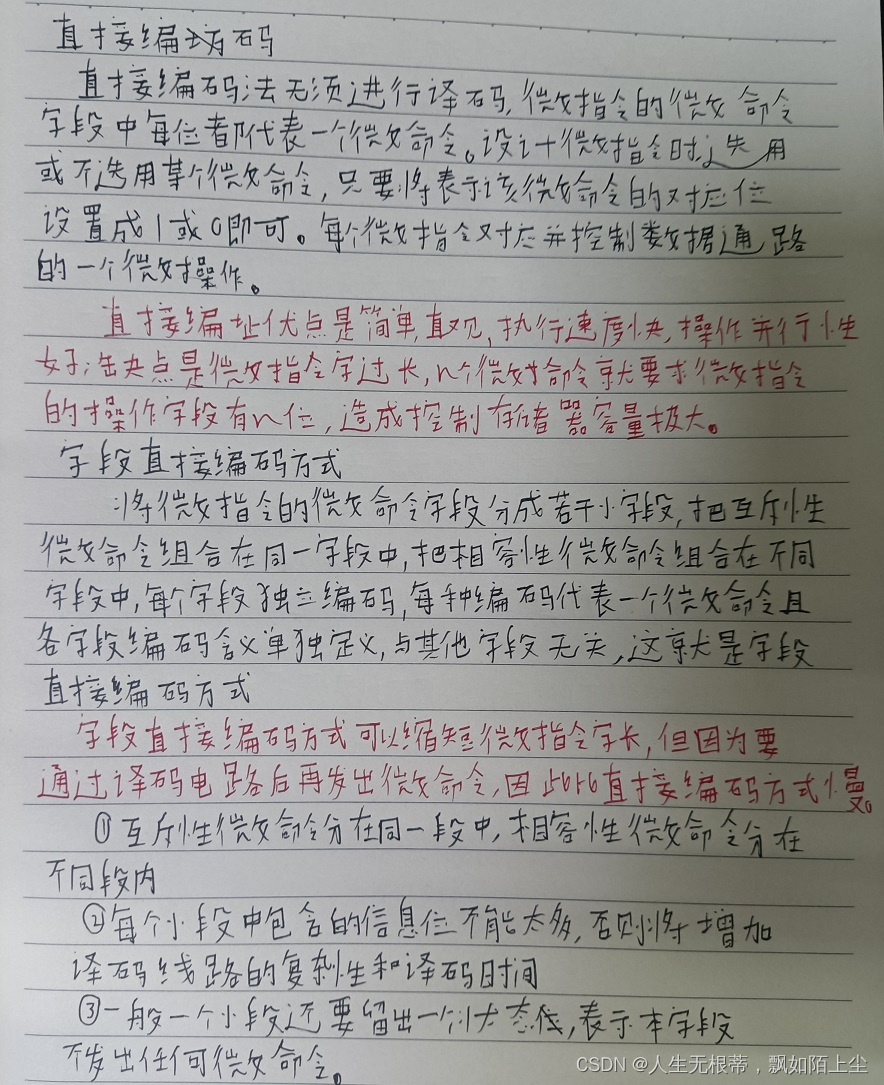 直接编码
直接编码法无须进行译码,微指令的微命令
字段中每位都代表一个微命令。设计微指令时,选用
或不选用某个微命令,只要将表示该微命令的对应位
设置成1或0即可。每个微指令对应并控制数据通路
的一个微操作。
直接编址优点是简单,直观,执行速度快,操作并行性
好;缺点是微指令字过长,n个微命令就要求微指令
的操作字段有n位,造成控制存储器容量极大。
字段直接编码方式
将微指令的微命令字段分成若干小字段,把互斥性
微命令组合在同一字段中,把相容性微命令组合在不同
字段中,每个字段独立编码,每种编码代表一个微命令且
各字段编码含义单独定义,与其他字段无关,这就是字段
直接编码方式
字段直接编码方式可以缩短微指令字长,但因为要
通过译码电路后再发出微命令,因此比直接编码方式慢。
①互斥性微命令分在同一段中,相容性微命令分在
不同段内
②每个小段中包含的信息位不能太多,否则将增加
译码线路的复杂性和译码时间
③一般一个小段还要留出一个状态,表示本字段
不发出任何微命令。
CSDN @人生无根蒂,飘如陌上尘